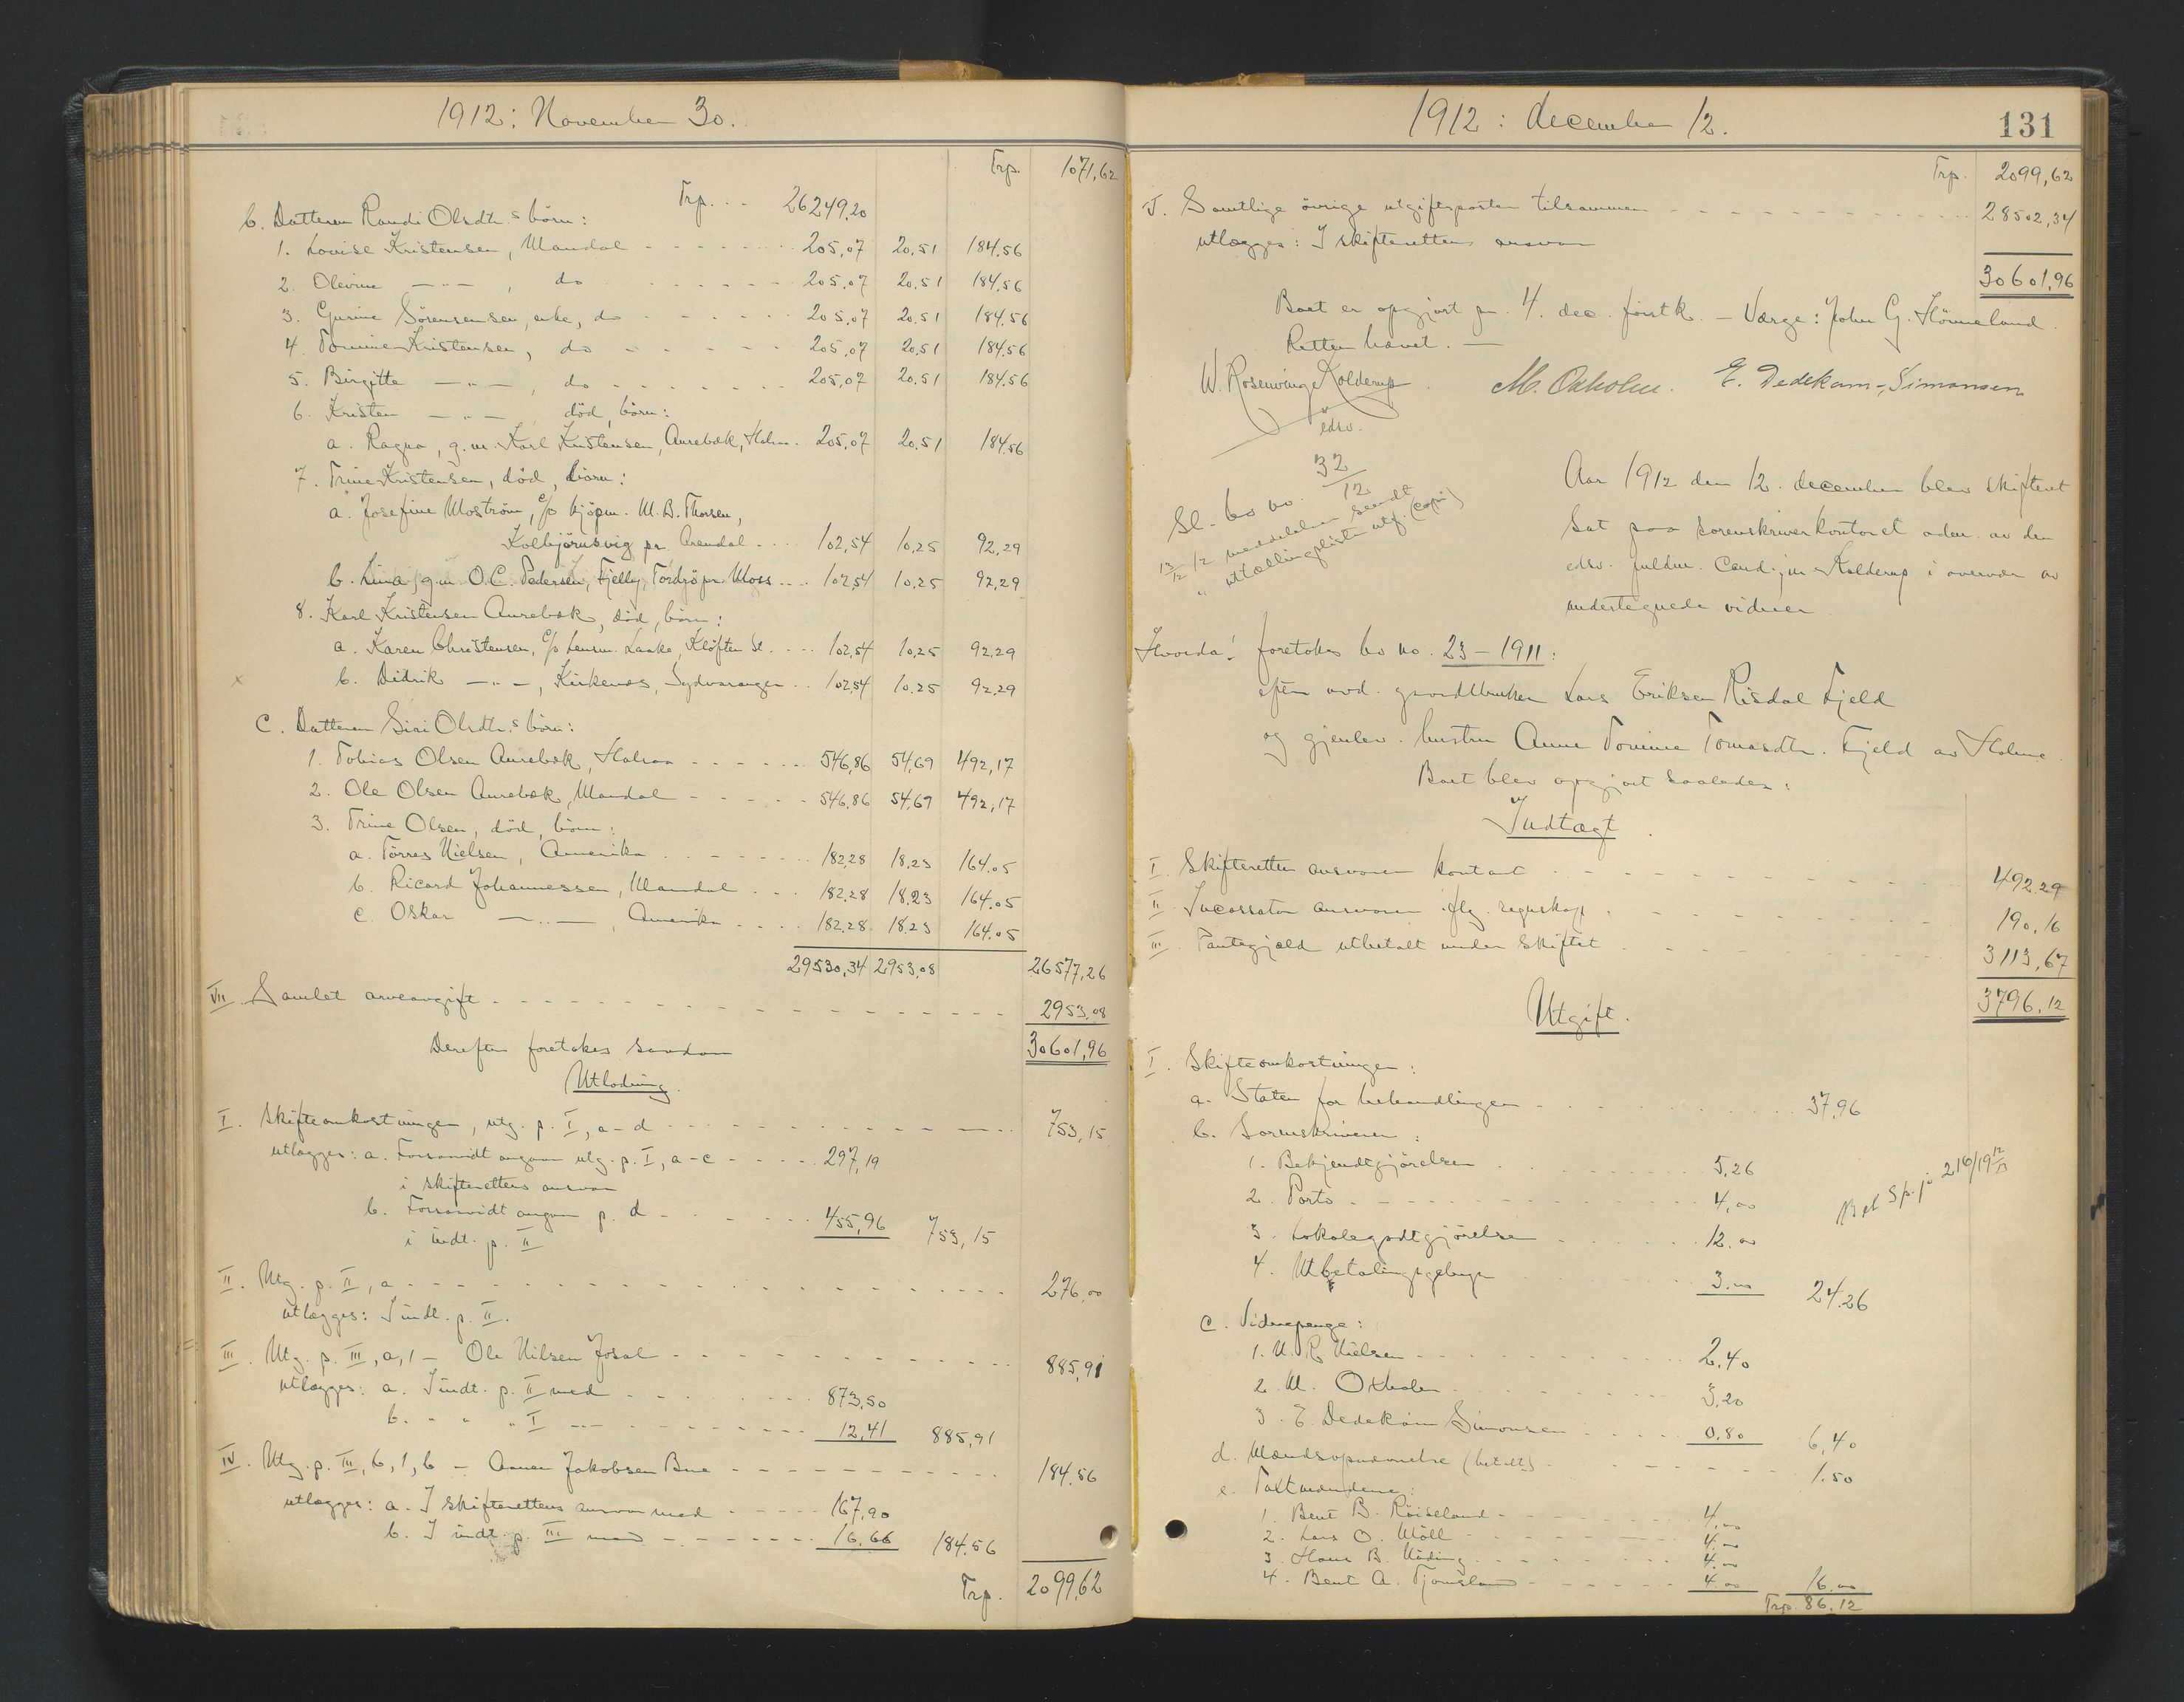 1912: November 30.
Trp. 1071,62
Trp. . - 26249,20
b. Datteren Randi Olsdtr.s börn:
1. Lovise Kristensen, Mandal - - - 205,07 20,51 184,56
2. Olevine -"-, do - - - 205,07 20,51 184,56
3. Gurine Sörensensen, enke, do - - - 205,07 20,51 184,56
4. Tomine Kristensen, do - - - 205,07 20,51 184,56
5. Birgitte -"-, do - - - 205,07 20,51 184,56
6. Kristen -"- död, börn:
a. Ragna, g.m. Karl Kristensen, Aurebæk, Halsaa. 205,07 20,51 184,56
7. Trine Kristensen, död, börn:
a. Josefine Moström, c/o kjöpm. M. B. Thorsen,
Kolbjörnsvig pr. Arendal . . . 102,54 10,25 92,29
b. Lina, g.m. O.C. Pedersen, Fjelly, Tordsö pr. Moss . . . 102,54 10,25 92,29
8. Karl Kristensen Aurebæk, död, börn:
a. Karen Christensen, c/o Lensm. Laake, Klöften St. . . . 102,54 10,25 92,29
x b. Didrik -"-, Kirkenes, Sydvaranger . . 102,54 10,25 92,29
c. Datteren Siri Olsdtr.s börn:
1. Tobias Olsen Aurebæk, Halsaa - - - 546,86 54,69 492,17
2. Ole Olsen Aurebæk, Mandal - - - 546,86 54,69 492,17
3. Trine Olsen, död, börn:
a. Törres Nielsen, Amerika - - - 182,28 18,23 164,05
b. Ricard Johannessen, Mandal . . . 182,28 18,23 164,05
c. Oskar -"-, Amerika . . . 182,28 18,23 164,05
29530,34 2953,08 26577,26
VII. Samlet arveavgift - - - 2953,08
30601,96
Derefter foretokes saadan
Utlodning.
I. Skifteomkostninger, utg. p. I, a-d - - - 753,15
utlægges: a. Forsaavidt angaar utg. p. I, a-c - - - 297,19
i skifterettens ansvar
b. Forsaavidt angaar p. d - - - 455,96 753,15
i indt. p. II
II. Utg. p. II, a - - - 276,00
utlægges: I indt. p. II.
III. Utg. p. III, a, 1 - Ole Nilsen Josal - - - 885,91
utlægges: a. I indt. p. II med - - - 873,50
b. " " " I -"- - - - 12,41 885,91
IV. Utg. p. III, b, 1, b - Aanen Jakobsen Bue - - - 184,56
utlægges: a. I skifterettens ansvar med - - - 167,90
b. I indt. p. III med - - - 16,66 184,56
Trp. 2099,62
1912: december 12.
131
Trp. 2099,62
V. Samtlige övrige utgiftsposter tilsammen - - - 28502,34
utlægges: I skifterettens ansvar
30601,96
Boet er opgjort pr. 4. dec. förstk. - Værge: John G. Hönneland.
Retten hævet. -
W. Rosenvinge Kolderup. M. Oxholm. E. Dedekam-Simonsen
edsv.
Sl. bo no. 32/12
13/12 12 meddelelser sendt
" utlodningsliste utf. (copi)
Aar 1912 den 12. december blev skifteret
sat paa sorenskriverkontoret adm. av den
edsv. fuldm. Cand. jur Kolderup i overvær av
undertegnede vidner
Hvorda: foretokes bo no. 23 - 1911:
efter avd. gaardbruker Lars Eriksen Risdal Fjeld
og gjenlev. hustru Anne Tomine Tomasdtr. Fjeld av Holme.
Boet blev opgjort saaledes:
Indtægt.
I. Skifteretten ansvarer kontant - - - 492,29
II. Incassator ansvarer iflg. regnskap - - - 190,16
III. Pantegjæld utbetalt under skiftet - - - 3113,67
3796,12
Utgift.
I. Skifteomkostninger:
a. Staten for behandlingen - - - 37,96
b. Sorenskriveren:
1. Bekjendtgjörelsen - - - 5,26
2. Porto - - - 4,00
3. Lokalegodtgjörelse - - - 12.00
4. Utbetalingsgebyr 3.00 24.26
Bet Sp. j. 216/1912/13
c. Vidnepenge:
1. N. R. Nielsen - - - 2,40
2. M. Oxholm - - - 3,20
3. E. Dedekam Simonsen - - - 0,80 6,40
d. Mændsopnævnelse (betalt) - - - 1.50
e. Taxtmændene:
1. Bent B. Röiseland - - - 4,00
2. Lars O. Möll - - - 4.00
3. Hans B. Nöding - - - 4.00
4. Bent A. Tjomsland - - - 4.00 16,00
Trp. 86,12